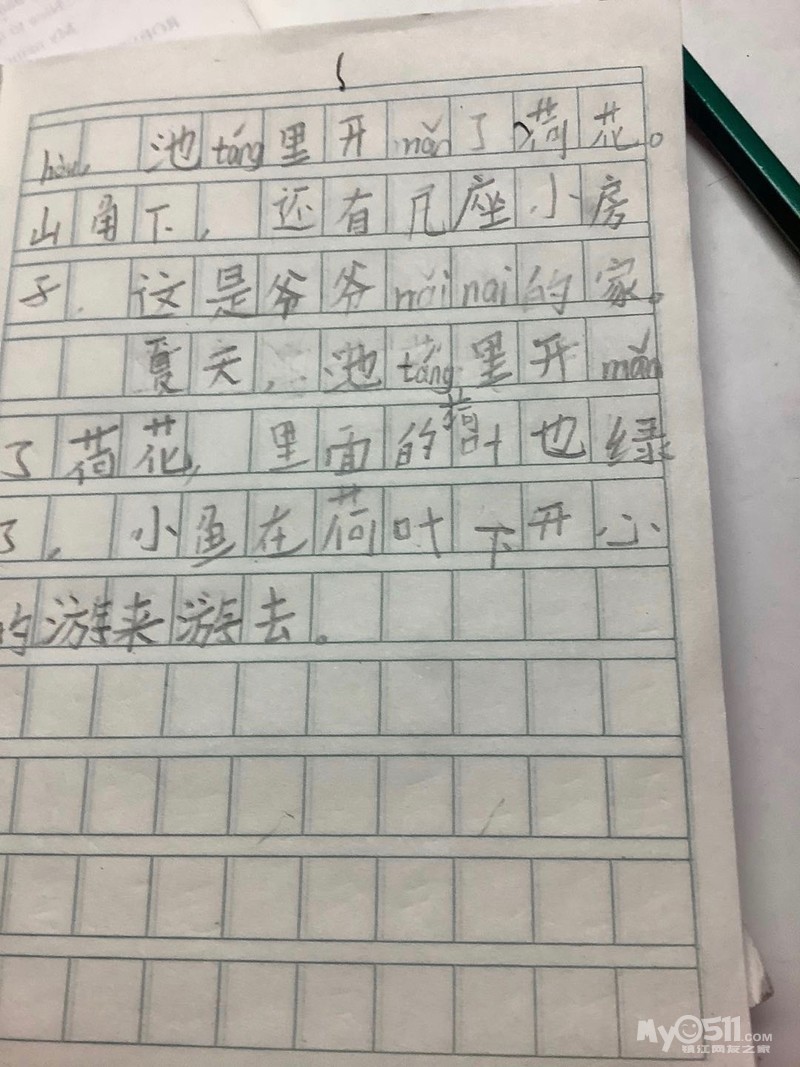 池táng里开mǎn了荷花。
山角下，还有几座小房
子，这是爷爷nǎinai的家。
夏天，池táng里开mǎn
了荷花，里面的荷叶也绿
了，小鱼在荷叶下开心
的游来游去。
My0511.COM
镇江网友之家